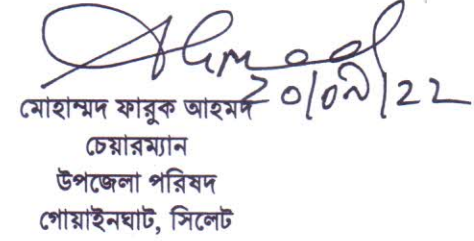 Ahmad
২০/০৯/২২
মোহাম্মদ ফারুক আহমদ
চেয়ারম্যান
উপজেলা পরিষদ
গোয়াইনঘাট, সিলেট